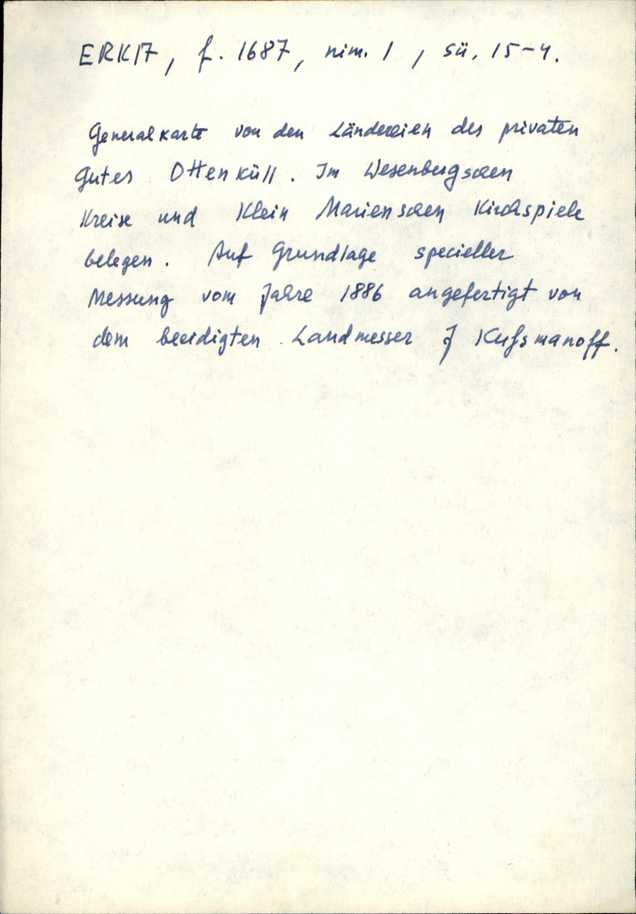 ERKA, f. 1687, nim. 1, sü. 15-4.
Generalkarte von den Ländereien des privaten
Gutes Ottenküll. Im Wesenbergschen
Kreise und Klein Marienschen Kirchspiele
belegen. Auf Grundlage specieller
Messung vom Jahre 1886 angefertigt von
dem beeidigten Landmesser J Kussmanoff.